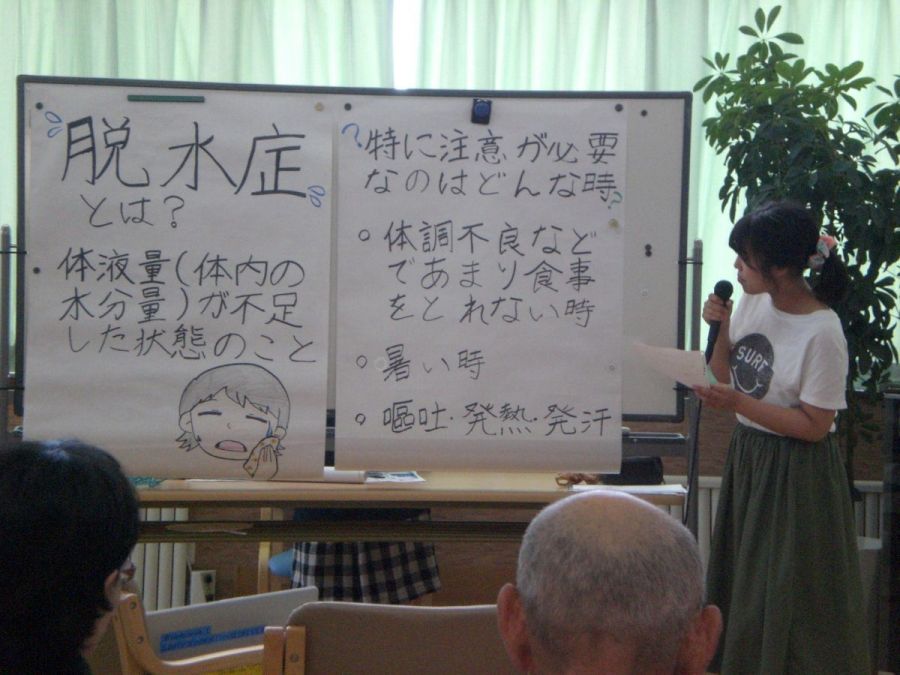 脱水症
とは？
体液量(体内の
水分量)が不足
した状態のこと
?特に注意が必要
なのはどんな時?
○体調不良など
であまり食事
をとれない時
○暑い時
○嘔吐・発熱・発汗
SURF